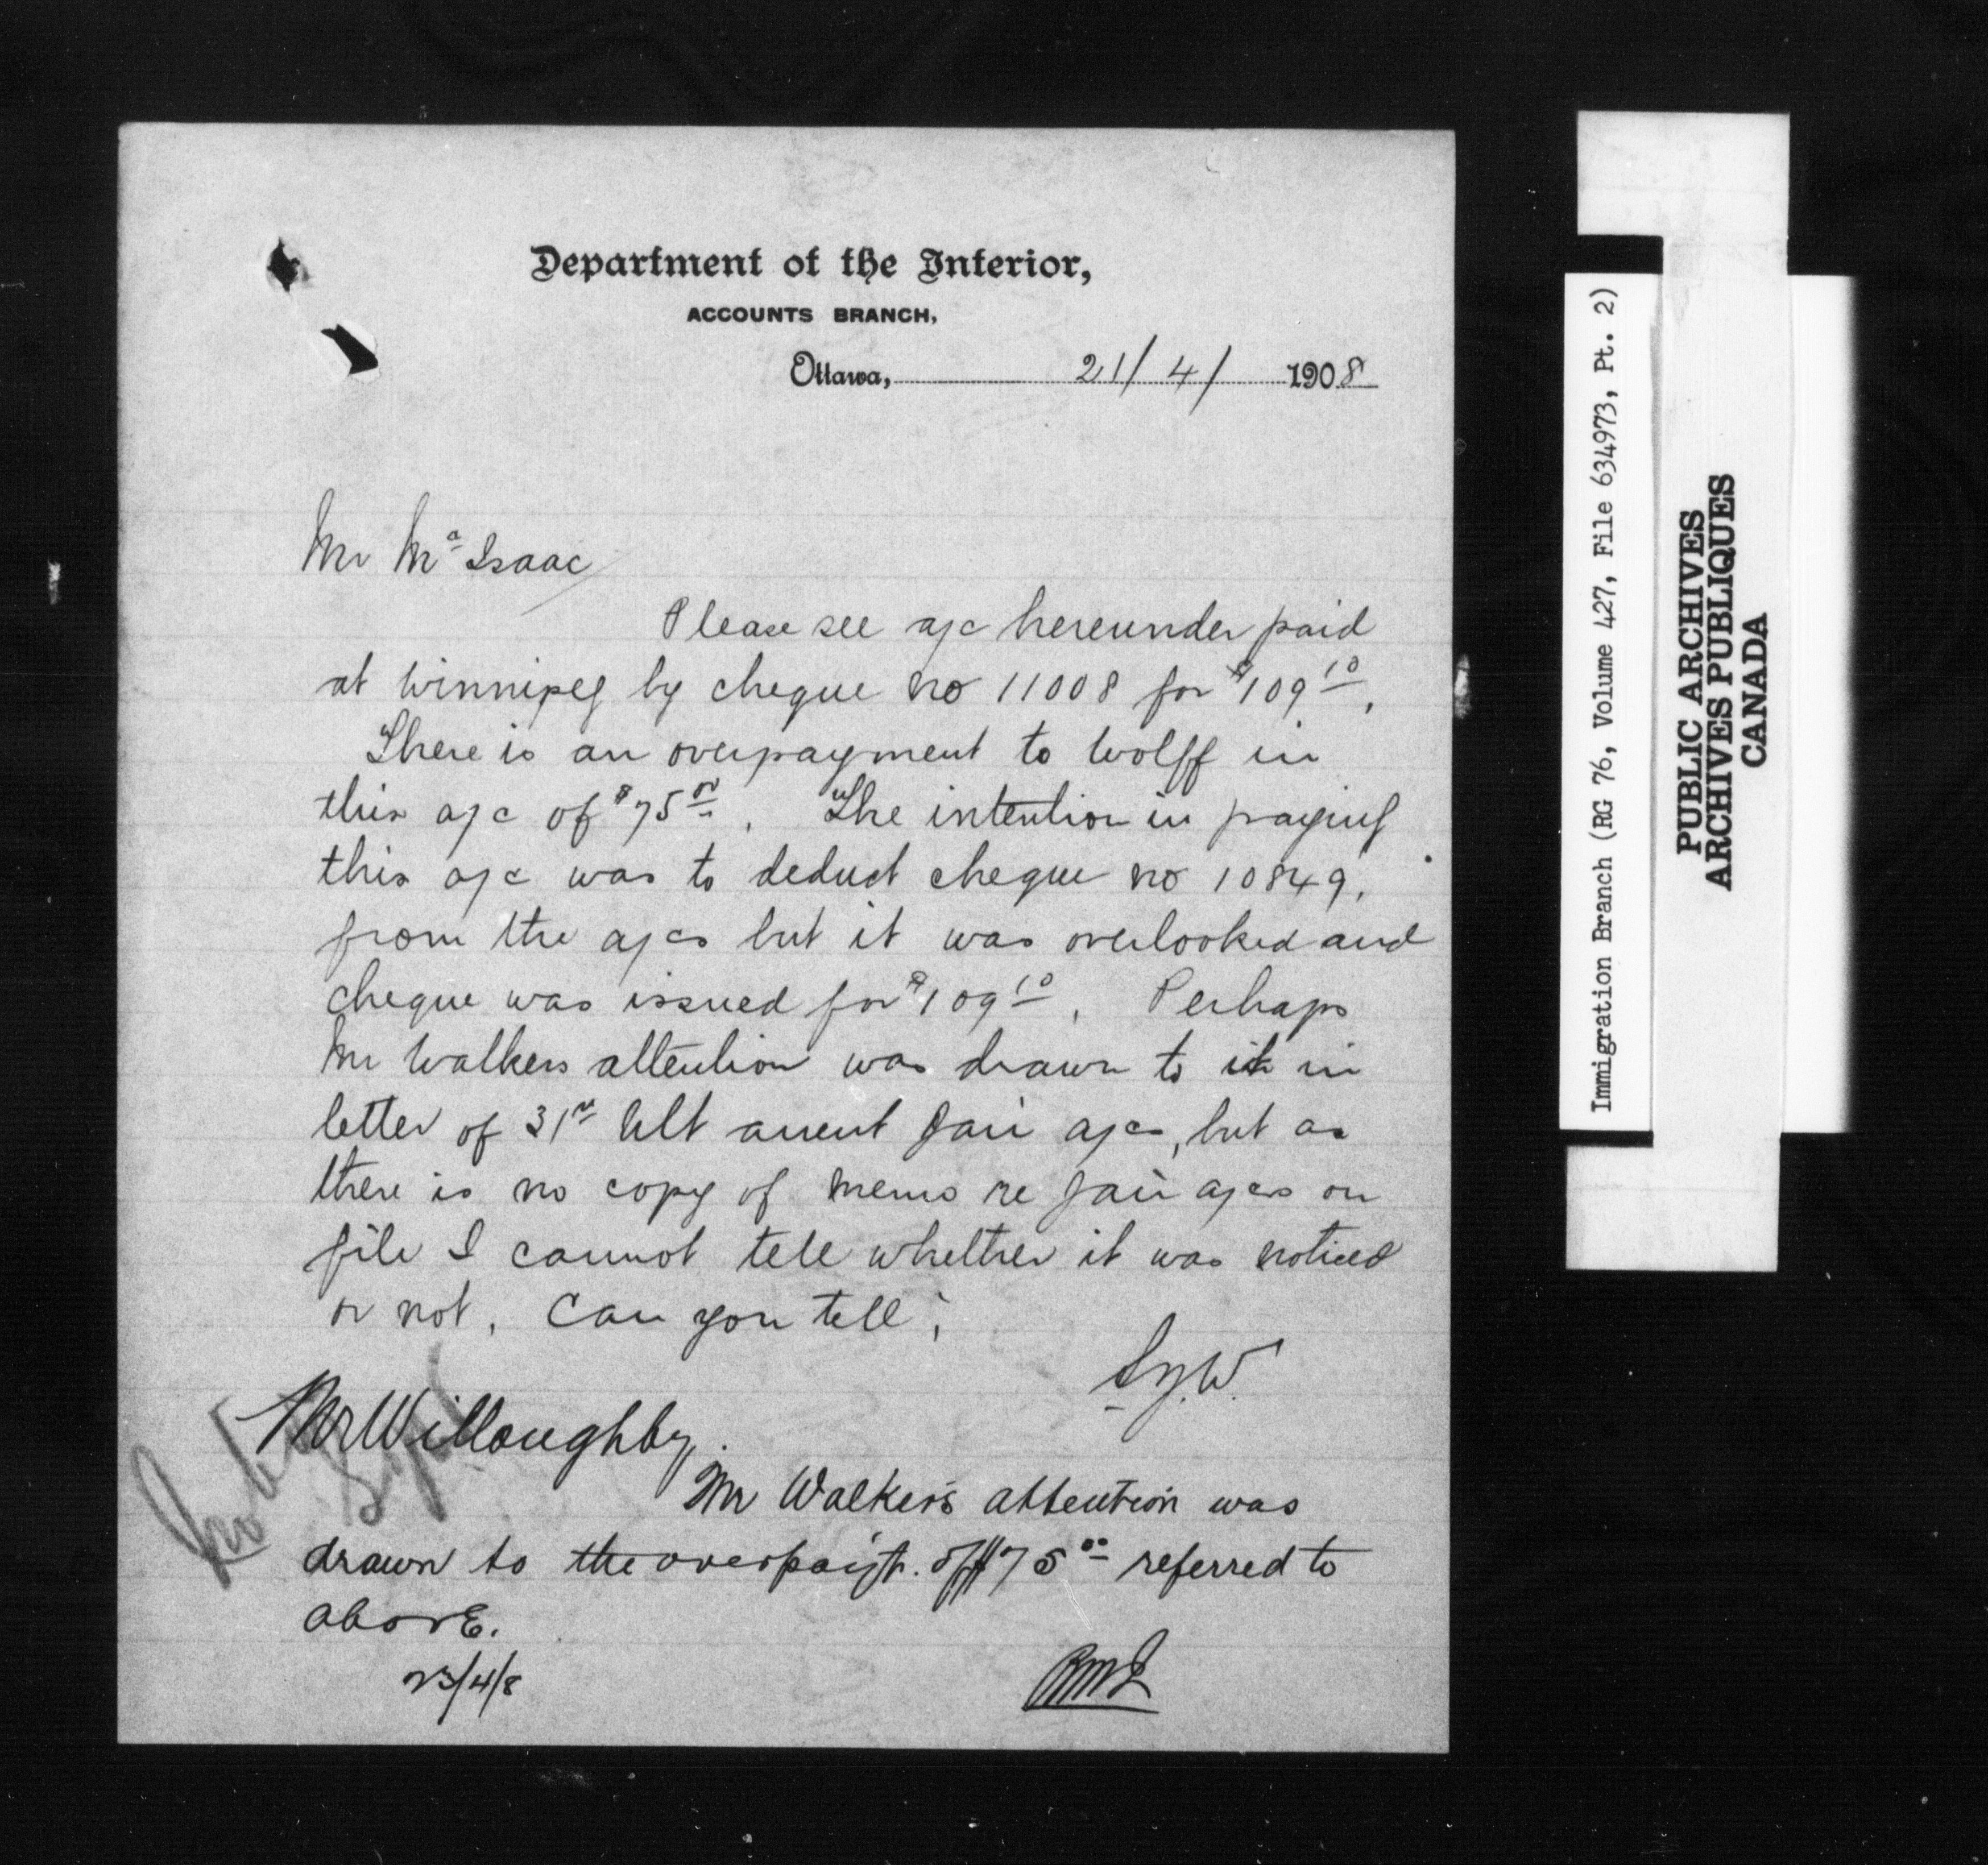 Department of the Interior,
ACCOUNTS BRANCH,
Ottawa, 21/4/ 1908
Mr Mc Isaac
Please see a/c hereunder paid
at Winnipeg by cheque no 11008 for $109 10.
There is an overpayment to Wolff in
this a/c of $75 00. The intention in paying
this a/c was to deduct cheque no 10849,
from the a/cs but it was overlooked and
cheque was issued for $109 10. Perhaps
Mr Walkers attention was drawn to it in
letter of 31st Ult anent Fair a/cs, but as
there is no copy of memo re Fair a/cs on
file I cannot tell whether it was noticed
or not. Can you tell?
Mr Willoughby.
Mr Walker's attention was
drawn to the overpaym't. of $75 00 referred to
above.
23/4/8
Immigration Branch (RG 76, Volume 427, File 634973, Pt. 2)
PUBLIC ARCHIVES
ARCHIVES PUBLIQUES
CANADA